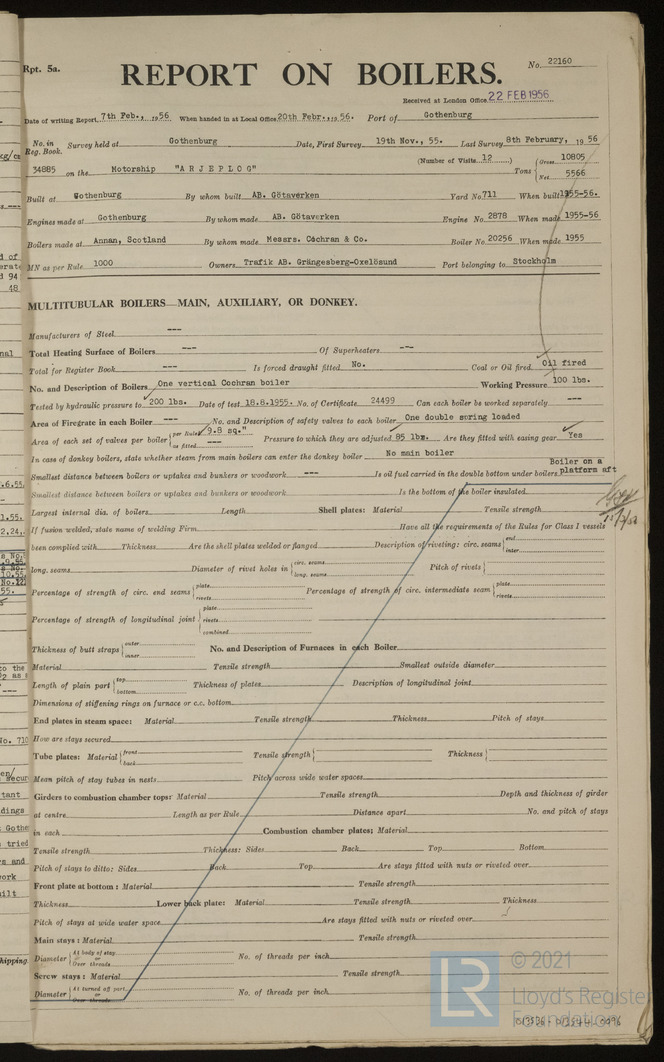 Rpt. 5a.
No. 22160
REPORT ON BOILERS.
Received at London Office 22 FEB 1956
Date of writing Report 7th Feb., 1956 When handed in at Local Office 20th Febr., 1956. Port of Gothenburg
No. in Reg. Book. Survey held at Gothenburg Date, First Survey 19th Nov., 55. Last Survey 8th February, 1956
(Number of Visits 12)
34885 on the Motorship "ARJEPLOG" Tons { Gross 10805 Net 5566
Built at Gothenburg By whom built AB. Götaverken Yard No. 711 When built 1955-56.
Engines made at Gothenburg By whom made AB. Götaverken Engine No. 2878 When made 1955-56
Boilers made at Annan, Scotland By whom made Messrs. Cochran & Co. Boiler No. 20256 When made 1955
MN as per Rule 1000 Owners Trafik AB. Grängesberg-Oxelösund Port belonging to Stockholm
MULTITUBULAR BOILERS—MAIN, AUXILIARY, OR DONKEY.
Manufacturers of Steel ---
Total Heating Surface of Boilers --- Of Superheaters ---
Total for Register Book --- Is forced draught fitted No. Coal or Oil fired Oil fired
No. and Description of Boilers One vertical Cochran boiler Working Pressure 100 lbs.
Tested by hydraulic pressure to 200 lbs. Date of test 18.8.1955. No. of Certificate 24499 Can each boiler be worked separately ---
Area of Firegrate in each Boiler --- No. and Description of safety valves to each boiler One double spring loaded
Area of each set of valves per boiler { per Rule 9.8 sq." as fitted --- Pressure to which they are adjusted 85 lbs. Are they fitted with easing gear Yes
In case of donkey boilers, state whether steam from main boilers can enter the donkey boiler No main boiler
Smallest distance between boilers or uptakes and bunkers or woodwork --- Is oil fuel carried in the double bottom under boilers Boiler on a platform aft
Smallest distance between boilers or uptakes and bunkers or woodwork Is the bottom of the boiler insulated
Largest internal dia. of boilers Length Shell plates: Material Tensile strength
If fusion welded, state name of welding Firm Have all the requirements of the Rules for Class I vessels
been complied with Thickness Are the shell plates welded or flanged Description of riveting: circ. seams { end inter.
long. seams Diameter of rivet holes in { circ. seams long. seams Pitch of rivets {
Percentage of strength of circ. end seams { plate rivets Percentage of strength of circ. intermediate seam { plate rivets
Percentage of strength of longitudinal joint { plate rivets combined
Thickness of butt straps { outer inner No. and Description of Furnaces in each Boiler
Material Tensile strength Smallest outside diameter
Length of plain part { top bottom Thickness of plates Description of longitudinal joint
Dimensions of stiffening rings on furnace or c.c. bottom
End plates in steam space: Material Tensile strength Thickness Pitch of stays
How are stays secured
Tube plates: Material { front back Tensile strength { Thickness {
Mean pitch of stay tubes in nests Pitch across wide water spaces
Girders to combustion chamber tops: Material Tensile strength Depth and thickness of girder
at centre Length as per Rule Distance apart No. and pitch of stays
in each Combustion chamber plates: Material
Tensile strength Thickness: Sides Back Top Bottom
Pitch of stays to ditto: Sides Back Top Are stays fitted with nuts or riveted over
Front plate at bottom: Material Tensile strength
Thickness Lower back plate: Material Tensile strength Thickness
Pitch of stays at wide water space Are stays fitted with nuts or riveted over
Main stays: Material Tensile strength
Diameter { At body of stay or Over threads No. of threads per inch
Screw stays: Material Tensile strength
Diameter { At turned off part or Over threads No. of threads per inch
LR
© 2021
Lloyd's Register
Foundation